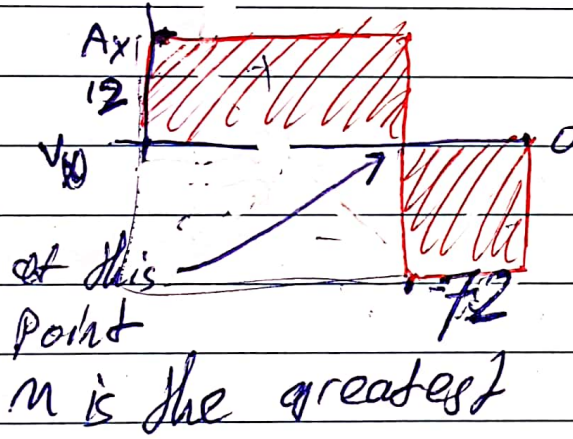 Axi
12
0
-72
at this
point
m is the greatest